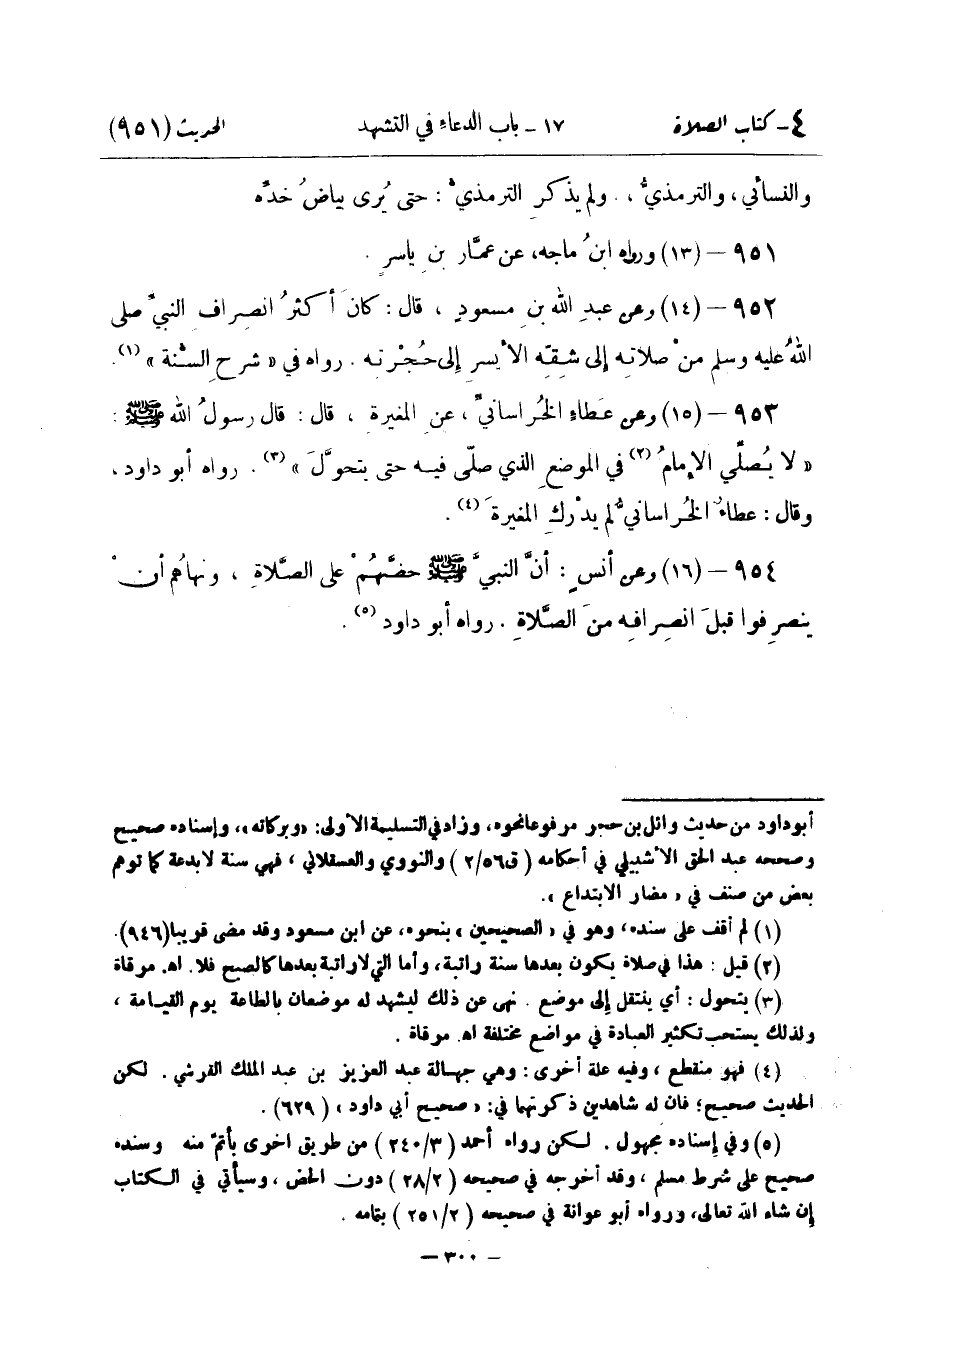 ٤- كتاب الصلاة ١٧ - باب الدعاء في التشهد الحديث (٩٥١)
والنسائي، والترمذيُّ، . ولم يذكرِ الترمذيُّ: حتى يُرى بياضُ خدِّه
٩٥١ – (١٣) ورواه ابنُ ماجه، عن عمَّار بنِ ياسرٍ .
٩٥٢ – (١٤) وعن عبدِ اللهِ بنِ مسعودٍ ، قال: كانَ أكثرُ انصرافِ النبيِّ صلى
اللهُ عليه وسلم منْ صلاتِه إلى شقِّه الأيسرِ إلى حُجْرتِه . رواه في « شرح السُّنة » (١).
٩٥٣ – (١٥) وعن عَطاءِ الخُراسانيِّ، عنِ المغيرةِ ، قال: قال رسولُ الله ﷺ :
« لا يُصلِّي الإمامُ (٢) في الموضعِ الذي صلّى فيه حتى يتحوَّلَ » (٣) . رواه أبو داود،
وقال: عطاءٌ الخُراسانيُّ لم يدْركِ المغيرةَ (٤) .
٩٥٤ – (١٦) وعن أنسٍ : أنَّ النبيَّ ﷺ حضَّهُمْ على الصَّلاةِ ، ونهاهُم أنْ
ينصرِفوا قبلَ انصِرافِه منَ الصَّلاةِ . رواه أبو داود (٥) .
أبو داود من حديث وائل بن حجر مرفوعا نحوه، وزاد في التسليمة الأولى: «وبركاته»، وإسناده صحيح
وصححه عبد الحق الأشبيلي في أحكامه ( ق٢/٥٦ ) والنووي والعسقلاني ، فهي سنة لا بدعة كما توهم
بعض من صنف في « مضار الابتداع ».
(١) لم أقف على سنده، وهو في « الصحيحين » بنحوه، عن ابن مسعود وقد مضى قريبا (٩٤٦).
(٢) قيل : هذا في صلاة يكون بعدها سنة راتبة، وأما التي لا راتبة بعدها كالصبح فلا. اهـ. مرقاة
(٣) يتحول : أي ينتقل إلى موضع . نهي عن ذلك ليشهد له موضعان بالطاعة يوم القيامة ،
ولذلك يستحب تكثير العبادة في مواضع مختلفة اهـ. مرقاة .
(٤) فهو منقطع ، وفيه علة أخرى: وهي جهالة عبد العزيز بن عبد الملك القرشي . لكن
الحديث صحيح؛ فان له شاهدين ذكرتهما في: « صحيح أبي داود » ( ٦٢٩ ).
(٥) وفي إسناده مجهول . لكن رواه أحمد ( ٢٤٠/٣ ) من طريق اخرى بأتمّ منه وسنده
صحيح على شرط مسلم ، وقد أخرجه في صحيحه ( ٢٨/٢ ) دون الحض ، وسيأتي في الكتاب
إن شاء الله تعالى، ورواه أبو عوانة في صحيحه ( ٢٥١/٢ ) بتمامه .
– ٣٠٠ –